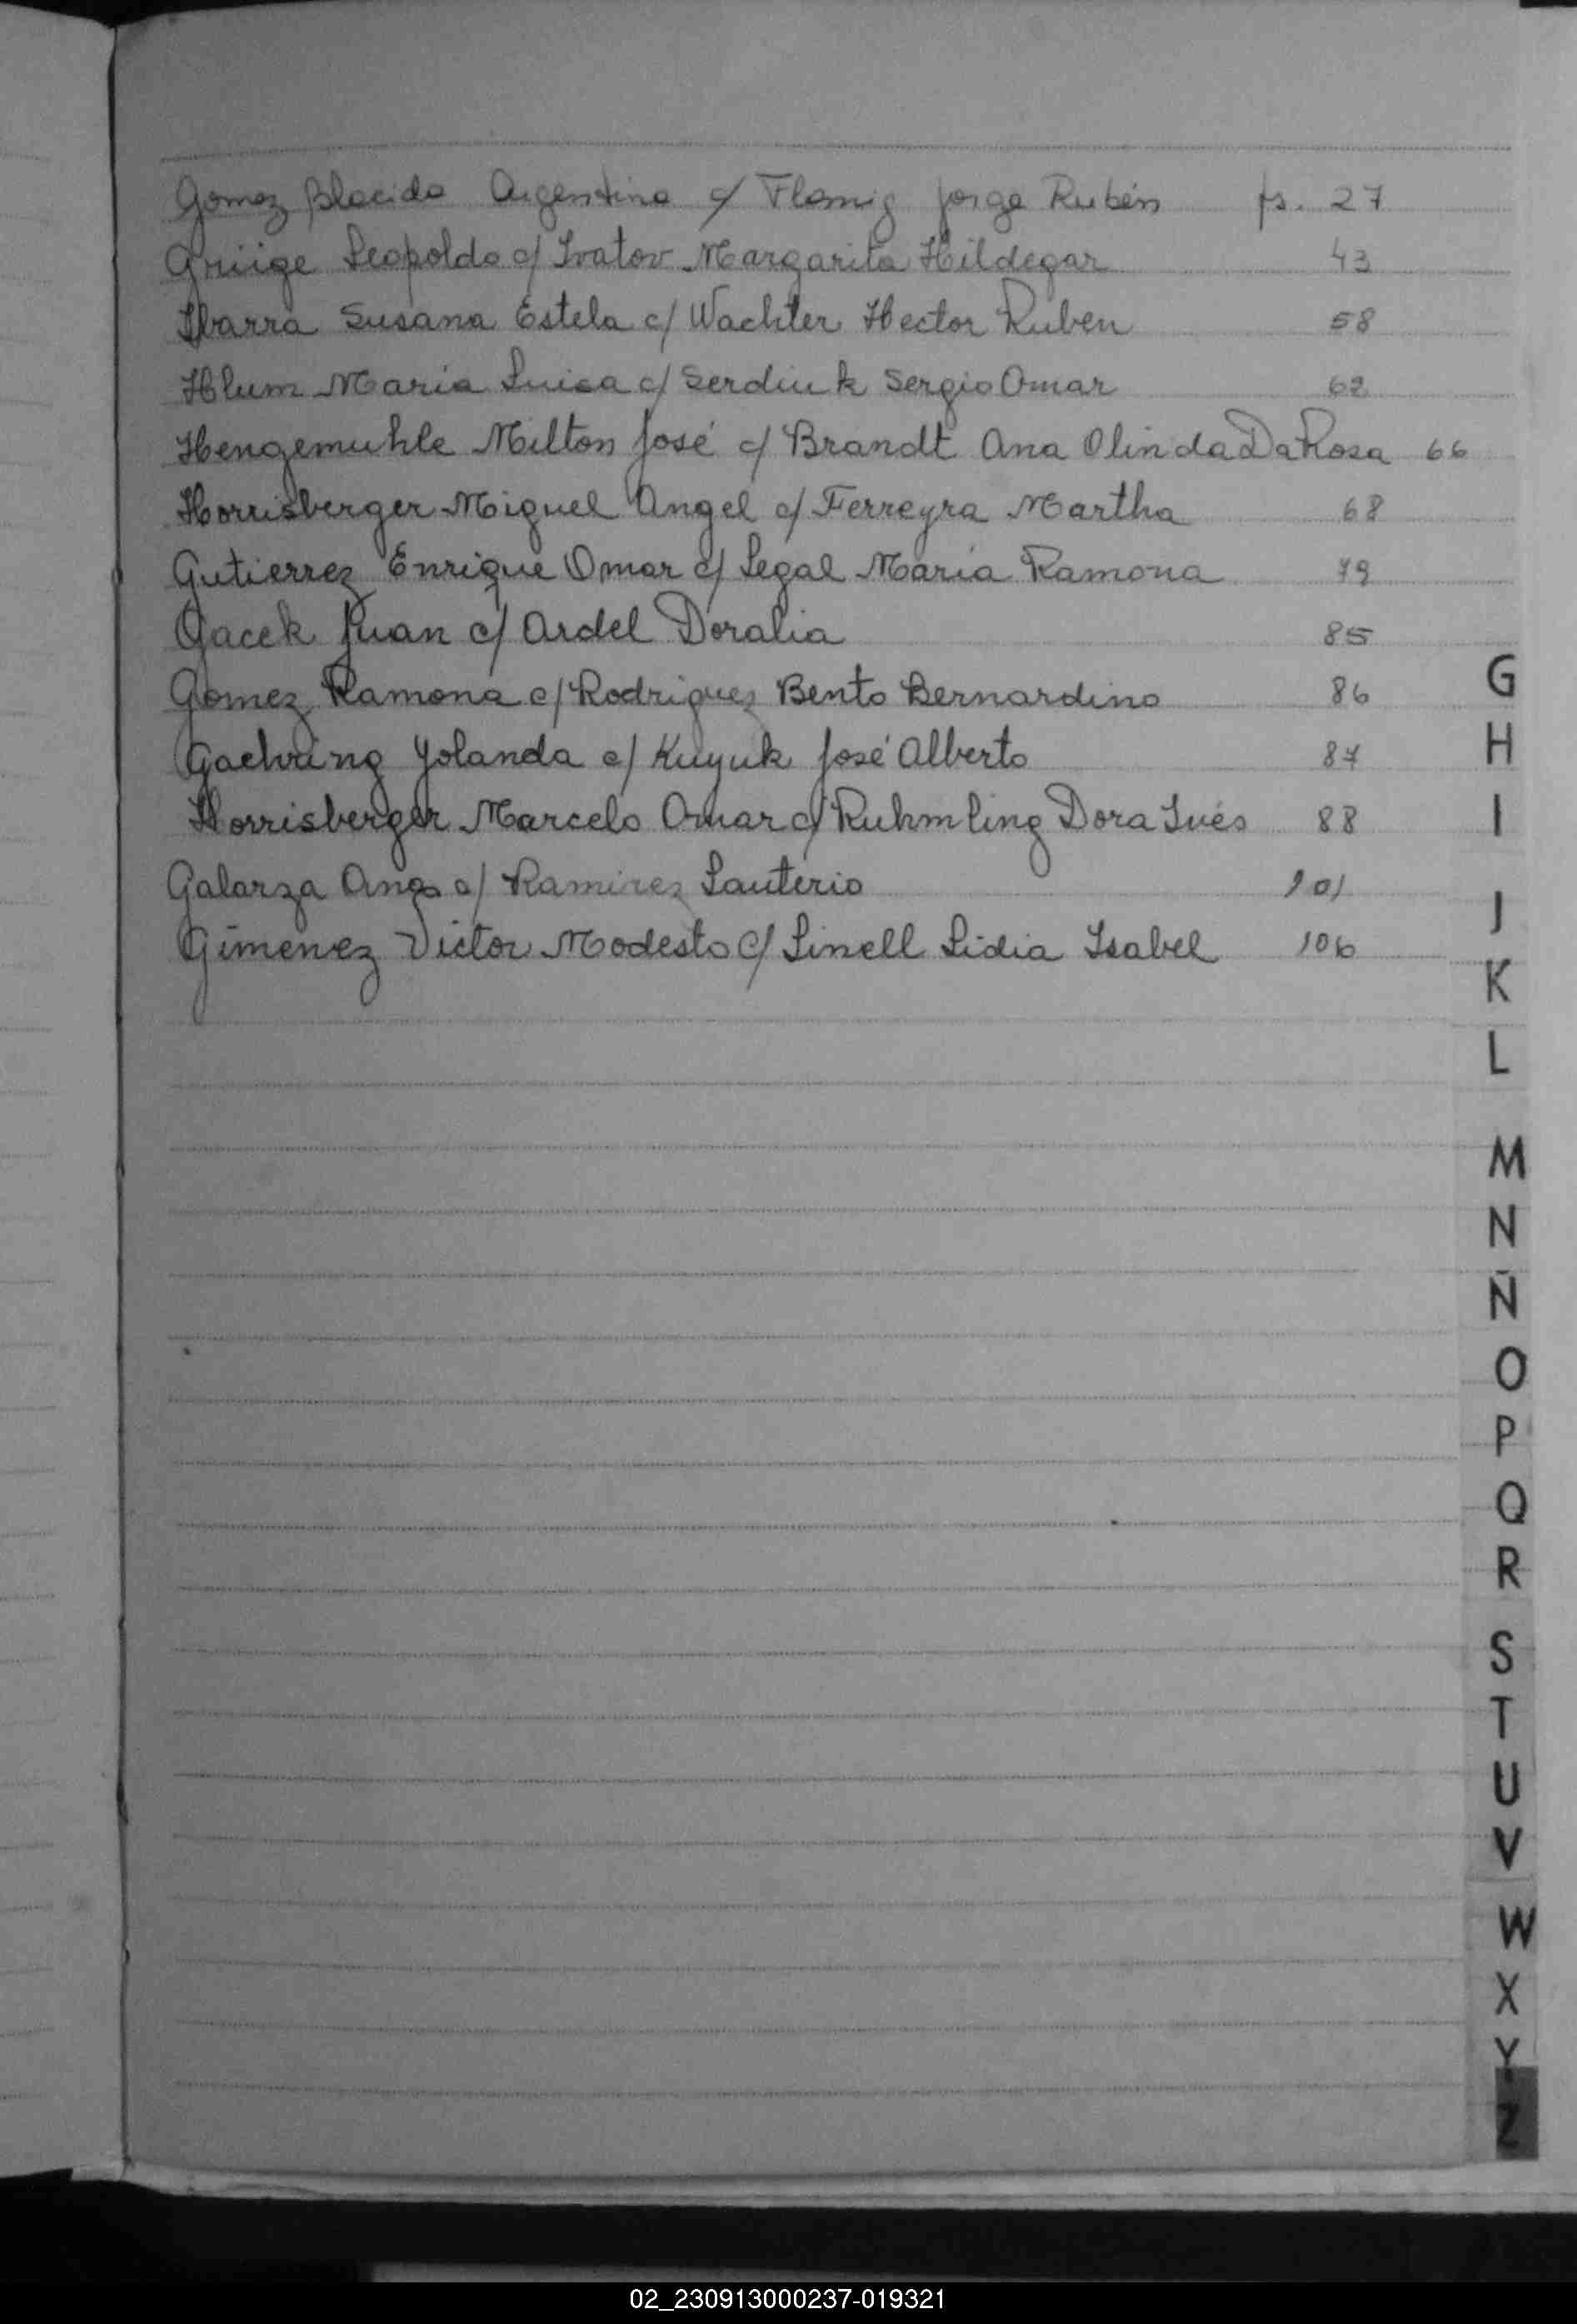 Gomez Placida Argentina c/ Flamig Jorge Rubén fs. 27
Grüige Leopoldo c/ Ivatov Margarita Hildegar 43
Ibarra Susana Estela c/ Wachter Hector Ruben 58
Hlum María Luisa c/ Serdiuk Sergio Omar 62
Hengemuhle Milton José c/ Brandt Ana Olinda Da Rosa 66
Horrisberger Miguel Angel c/ Ferreyra Martha 68
Gutierrez Enrique Omar c/ Legal María Ramona 79
Gacek Juan c/ Ardel Doralia 85
Gomez Ramona c/ Rodriguez Bento Bernardino 86
Gaehring Yolanda c/ Kuyuk José Alberto 87
Horrisberger Marcelo Omar c/ Ruhmling Dora Inés 88
Galarza Ana c/ Ramirez Lauterio 101
Gimenez Victor Modesto c/ Linell Lidia Isabel 106
G
H
I
J
K
L
M
N
Ñ
O
P
Q
R
S
T
U
V
W
X
Y
Z
02_230913000237-019321